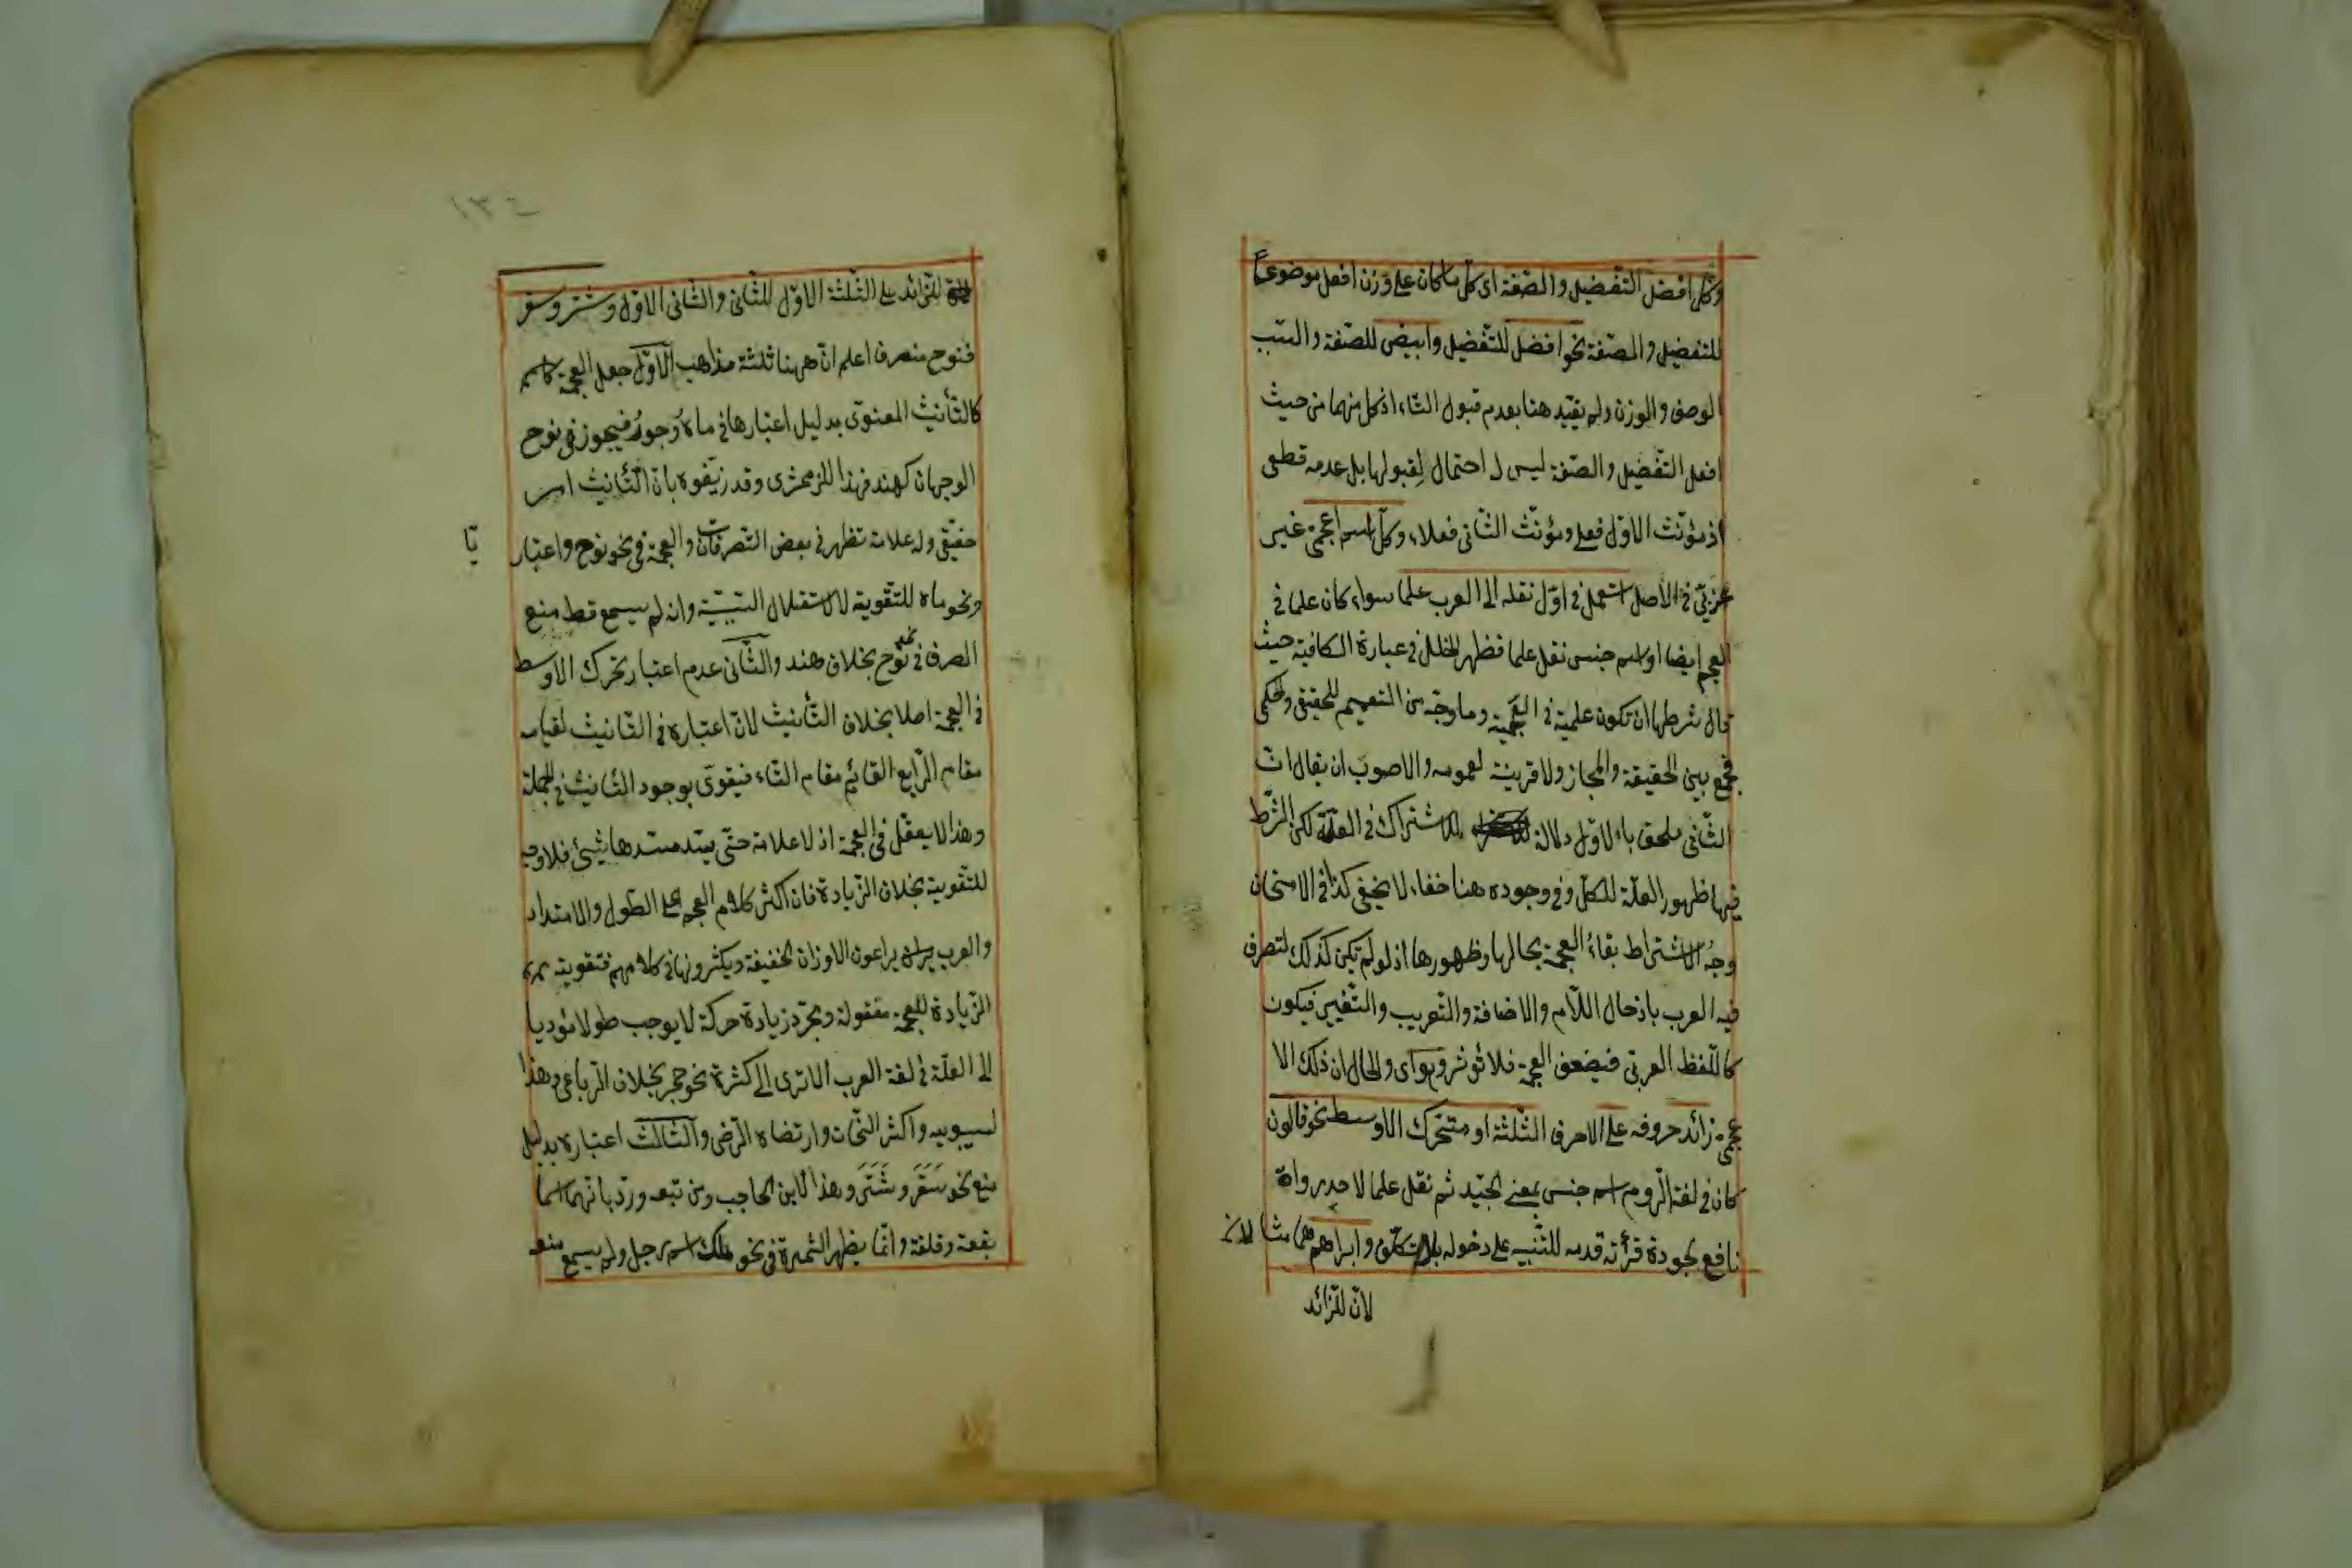 وكل افضل التفضيل والصفة اى كل ما كان على وزن افعل موضوعا
للتفضيل والصفة نحو افضل للتفضيل وابيض للصفة والسبب
الوصف والوزن ولم يقيد هنا بعدم قبول التاء اذ كل منهما من حيث
افعل التفضيل والصفة ليس له احتمال لقبولها بل عدمه قطعى
اذ مؤنث الاول فعلى ومؤنث الثانى فعلاء وكل اسم اعجمى غير
عربى فى الاصل استعمل فى اول نقله الى العرب علما سواء كان علما فى
العجم ايضا او اسم جنس نقل علما فظهر الخلل فى عبارة الكافية حيث
قال شرطها ان تكون علمية فى العجمية وما وجه من التعميم للحقيقى والحكمى
فجمع بين الحقيقة والمجاز ولا قرينة لعمومه والاصوب ان يقال ان
الثانى ملحق بالاول دلالة للاشتراك فى العلة لكن الشرط
فيها ظهور العلة للكل وفى وجوده هنا خفاء لا يخفى كذا فى الامتحان
وجه الاشتراط بقاء العجمة بحالها وظهورها اذ لو لم تكن كذلك لتصرف
فيه العرب بادخال اللام والاضافة والتعريب والتغيير فيكون
كاللفظ العربى فيضعف العجمة فلا تؤثر وهو اى والحال ان ذلك الا
عجمى زائد حروفه على الاحرف الثلثة او متحرك الاوسط نحو قالون
كان فى لغة الروم اسم جنس بمعنى الجيد ثم نقل علما لاحد رواة
نافع لجودة قرأته قدمه للتنبيه على دخوله وابراهيم مثالان
لان للزائد
١٣٤
للزائد على الثلثة الاول للثانى والثانى الاول وشتر وسقر
فنوح منصرف اعلم ان ههنا ثلثة مذاهب الاول جعل العجمة
كالتأنيث المعنوى بدليل اعتبارها فى ماه وجور فيجوز فى نوح
الوجهان كهند فهذا للزمخشرى وقد زيفوه بان التأنيث امر
حقيقى وله علامة تظهر فى بعض التصرفات والعجمة فى نحو نوح واعتبار
ونحو ماه للتقوية لا لاستقلال السببية وانه لم يسمع قط منع
الصرف فى نحو نوح بخلاف هند والثانى عدم اعتبار تحرك الاوسط
فى العجمة اصلا بخلاف التأنيث لان اعتباره فى التأنيث لقيامه
مقام الرابع القائم مقام التاء فيقوى بوجود التأنيث فى الجملة
وهذا لا يعقل فى العجمة اذ لا علامة حتى يسد مسدها شئ فلا وجه
للتقوية بخلاف الزيادة فان اكثر كلام العجم على الطول والامتداد
والعرب يراعون الاوزان الخفيفة ويكثرونها فى كلامهم فتقوية
الزيادة للعجمة معقولة ومجرد زيادة حركة لا يوجب طولا مؤديا
الى العلة فى لغة العرب الا ترى الى كثرة نحو حجر بخلاف الرباعى وهذا
لسيبويه واكثر النحات وارتضاه الرضى والثالث اعتباره بدليل
منع نحو سقر وشتر وهذا لابن الحاجب ومن تبعه ورد بانهما اسما
بقعة وقلعة وانما يظهر الثمرة فى نحو ملك اسم رجل ولم يسمع منعه